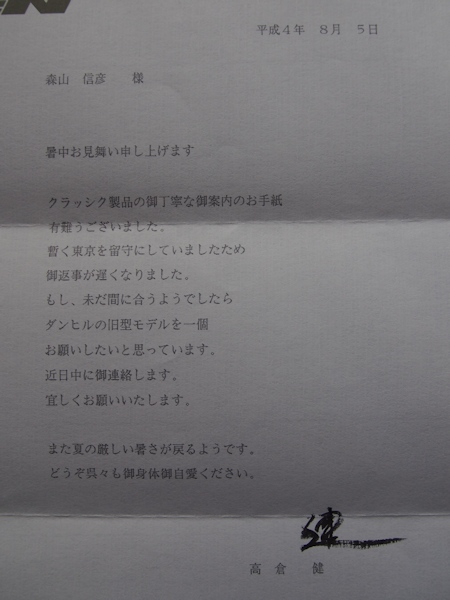 平成４年　８月　５日
森山　信彦　様
暑中お見舞い申し上げます
クラッシク製品の御丁寧な御案内のお手紙
有難うございました。
暫く東京を留守にしていましたため
御返事が遅くなりました。
もし、未だ間に合うようでしたら
ダンヒルの旧型モデルを一個
お願いしたいと思っています。
近日中に御連絡します。
宜しくお願いいたします。
また夏の厳しい暑さが戻るようです。
どうぞ呉々も御身体御自愛ください。
健
高　倉　　健